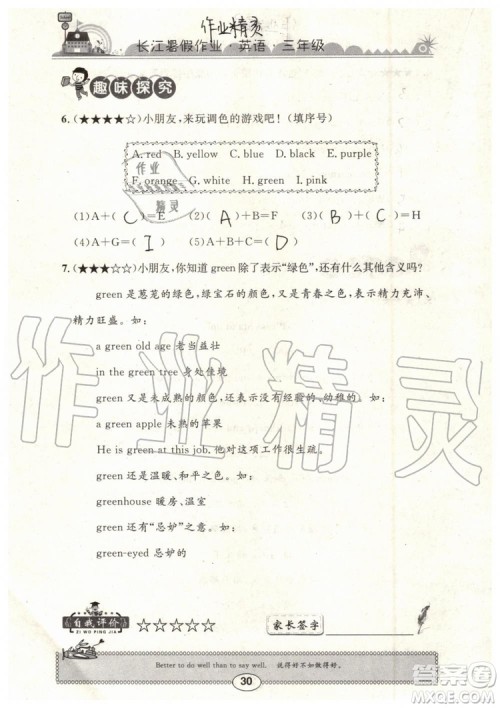 作业精灵
长江暑假作业·英语·三年级
趣味探究
6.(★★★★☆)小朋友,来玩调色的游戏吧!(填序号)
A. red B. yellow C. blue D. black E. purple
F. orange G. white H. green I. pink
作业
精灵
(1)A+( C )=E (2)( A )+B=F (3)( B )+( C )=H
(4)A+G=( I ) (5)A+B+C=( D )
7.(★★★☆☆)小朋友,你知道 green 除了表示“绿色”,还有什么其他含义吗?
green 是葱茏的绿色,绿宝石的颜色,又是青春之色,表示精力充沛、
精力旺盛。如:
a green old age 老当益壮
in the green tree 身处佳境
green 又是未成熟的颜色,还可以表示没有经验的、幼稚的。如:
a green apple 未熟的苹果
He is green at this job. 他对这项工作没有经验。
green 还是温暖、和平之色。如:
greenhouse 暖房、温室
green 还有“忌妒”之意。如:
green-eyed 忌妒的
作业精灵
自我评价
ZI WO PING JIA
☆☆☆☆☆
家长签字
Better to do well than to say well. 说得好不如做得好。
30